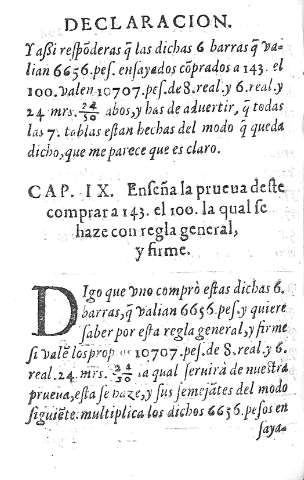 DECLARACION.
Y aſsi reſpõderas q̃ las dichas 6 barras q̃ va-
lian 6656. peſ. enſayados cõprados a 143. el
100. valen 10707. peſ. de 8. real. y 6. real. y
24 mrs. 24/50 abos, y has de aduertir, q̃ todas
las 7. tablas eſtan hechas del modo q̃ queda
dicho, que me parece que es claro.
CAP. IX. Enſeña la prueua deſte
comprar a 143. el 100. la qual ſe
haze con regla general,
y firme.
DIgo que vno comprò eſtas dichas 6.
barras, q̃ valian 6656 peſ. y quiere
ſaber por eſta regla general, y firme
ſi valẽ los 10707. peſ. de 8. real. y 6.
real. 24. mrs. 24/50 la qual ſeruirà de nueſtra
prueua, eſta ſe haze, y sus ſemejãtes del modo
ſiguiẽte. multiplica los dichos 6656. peſos en
ſaya-